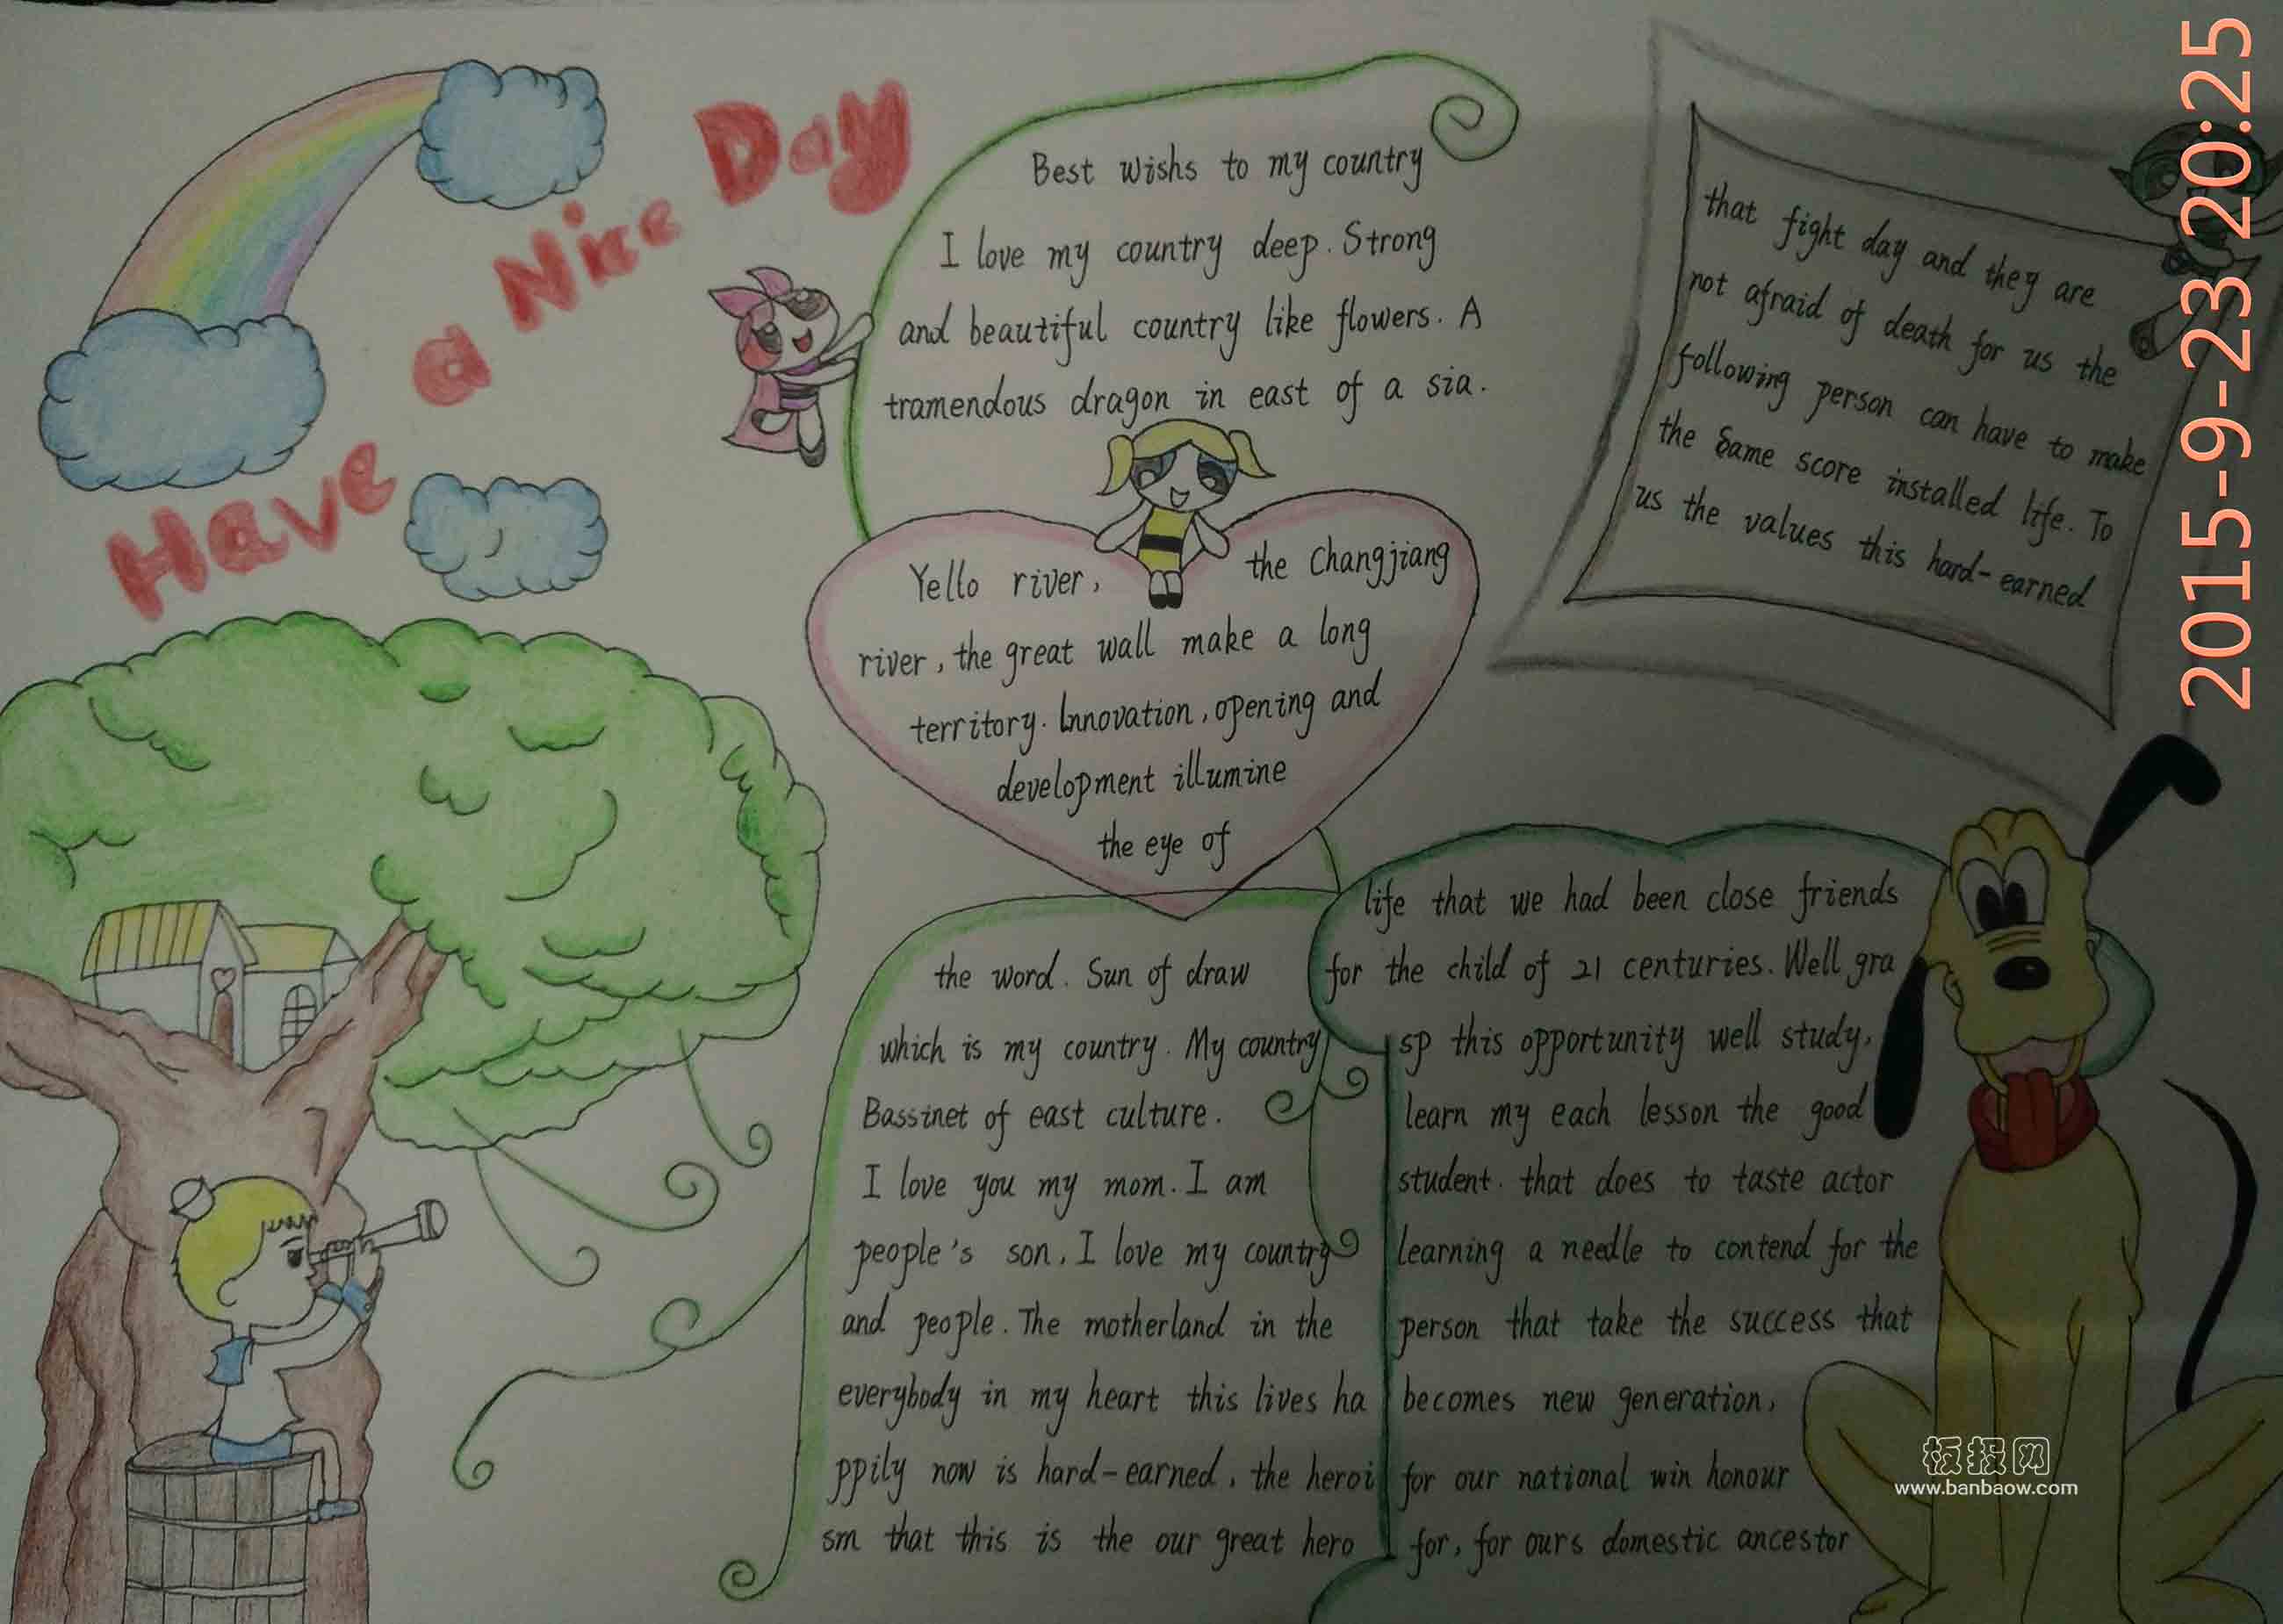 Have a Nice Day
Best wishs to my country
I love my country deep. Strong
and beautiful country like flowers. A
tramendous dragon in east of a sia.
Yello river, the Changjiang
river, the great wall make a long
territory. Innovation, opening and
development illumine
the eye of
the word. Sun of draw
which is my country. My country
Bassinet of east culture.
I love you my mom. I am
people's son, I love my country
and people. The motherland in the
everybody in my heart this lives ha
ppily now is hard-earned, the heroi
sm that this is the our great hero
that fight day and they are
not afraid of death for us the
following person can have to make
the same score installed life. To
us the values this hard-earned
life that we had been close friends
for the child of 21 centuries. Well gra
sp this opportunity well study,
learn my each lesson the good
student. that does to taste actor
learning a needle to contend for the
person that take the success that
becomes new generation,
for our national win honour
for, for ours domestic ancestor
2015-9-23 20:25
板报网
www.banbaow.com